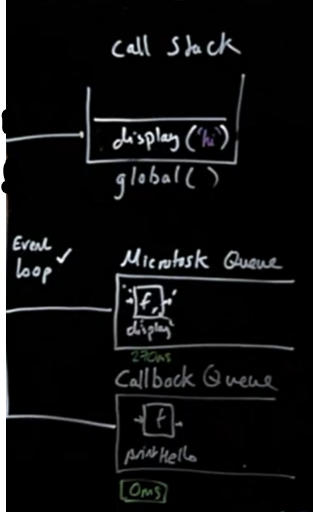 Call Stack
display ("hi")
global( )
Event
loop ✓
Microtask Queue
f
display
270ms
Callback Queue
f
printHello
0ms